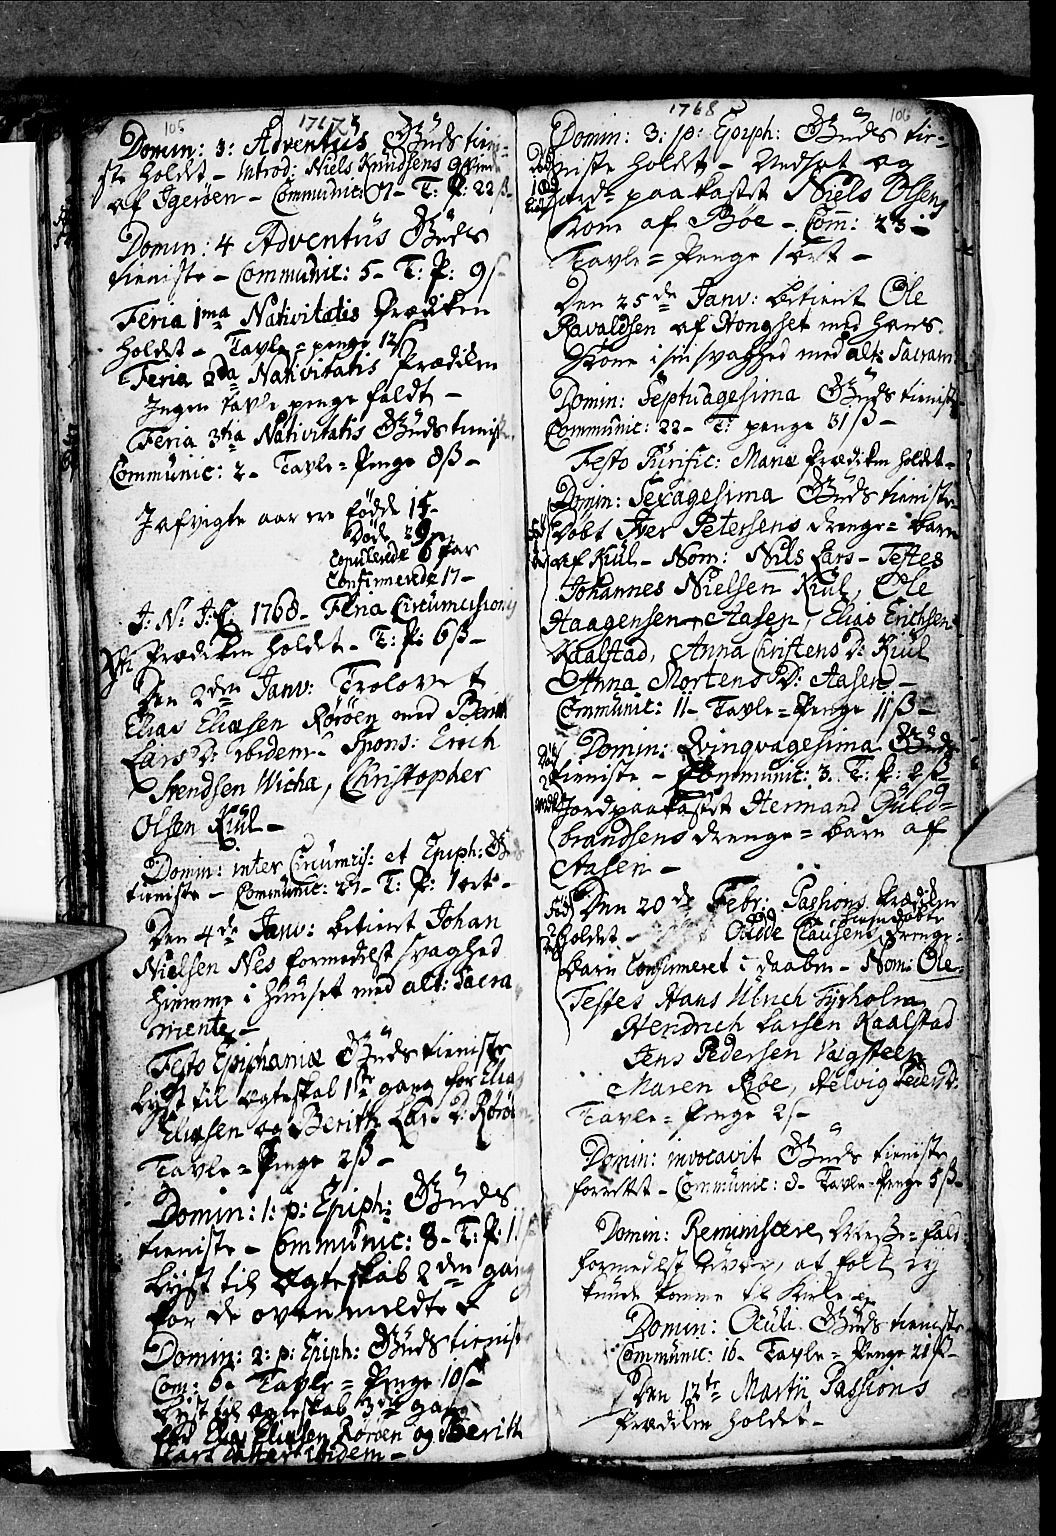 105
1767
Domin: 3: Adventus Guds tieni-
ste holdt - Introd: Niels Knudsens qvinde
af Igerøen - Communic: 17 - T: P: 22 ß -
Domin: 4 Adventus Guds
tieniste - Communic: 5 - T: P: 9 ß
Feria 1ma Nativitatis Prædiken
holdet - Tavle = penge 12 ß
Feria 2da Nativitatis Prædiken
Ingen tavle penge faldt -
Feria 3tia Nativitatis Guds tieniste
Communic: 2 - Tavle = Penge 8 ß -
I afvigte aar ere fødde 15 -
Døde 29
Copulerede 6 Par
Confirmerede 17 -
J: N: J: C: 1768 - Feria Circumcisionis
Xsti Prædiken holdet - T: P: 6 ß -
Den 2den Janv: Trolovet
Elias Eliasen Rørøen med Berith
Lars D: ibidem - Spons: Erich
Stendsen Wicha, Christopher
Olsen Kiul -
Domin: inter Circumcis: et Epiph: Guds
tieniste - Communic: 27 - T: P: 1 ort -
Den 4de Janv: betient Johan
Nielsen Nes formedelst svaghed
hiemme i Huuset med alt: Sacra
mente -
Festo Epiphaniæ Guds tieniste
Lyst til ægteskab 1ste gang for Elias
Eliasen og Berith Lars D: Rørøen
Tavle = Penge 2 ß -
Domin: 1: p: Epiph: Guds
tieniste - Communic: 8 - T: P: 1
Lyst til Ægteskab 2den gang
for de ovenmeldte
Domin: 2: p: Epiph: Guds tieniste
Com: 6 - Tavle = Penge 10 ß -
Lyst til ægteskab 3die gang
for Elias Eliasen Rørøen og Berith
Lars datter ibidem -
1768
106
Domin: 3: p: Epiph: Guds tie-
niste holdet - Undsat og
Jord paakastet Niels Olsens
Kone af Bøe - Com: 23 -
Tavle = Penge 1 ort -
Den 25de Janv: betient Ole
Ravaldsen af Hongset med hans
Kone i sin svaghed med alt: Sacram
Domin: Septuagesima Guds tieniste
Communic: 22 - T: penge 31 ß -
Festo Purific: Mariæ Prædiken holdet -
Domin: Sexagesima Guds tieniste -
Døbt Iver Petersens drenge = barn
af Kiul - Nom: Nils Lars - Testes
Johannes Nielsen Kiul, Ole
Haagensen Aasen, Elias Erichsen
Kaalstad, Anna Christens D: Kiul
Anna Mortens D: Aasen -
Communic: 11 - Tavle = Penge 11 ß -
Domin: Qvinqvagesima Guds
tieniste - Communic: 3. T: P: 2 ß -
Jordpaakastet Hermand Guld=
brandsens drenge = barn af
Aasen -
Den 20de Febr: Passions Prædiken
holdet - Odde Clausens hiemdøbte drenge=
barn Confirmeret i daaben - Nom: Ole -
Testes Hans Ulrich Tyrholm
Hendrich Larsen Kaalstad
Jens Pedersen Vægsteen
Maren Roe, Helvig Peders D:
Tavle = Penge 2 ß -
Domin: invocavit Guds tieniste
forrettet - Communic: 8 - Tavle = Penge 5 ß -
Domin: Reminiscere Messe = fald
formedelst uveir, at folk ey
kunde komme til Kirke
Domin: Oculi Guds tieniste
Communic: 16 - Tavle = Penge 21 ß -
Den 12te Martii Passions
Prædiken holdet -